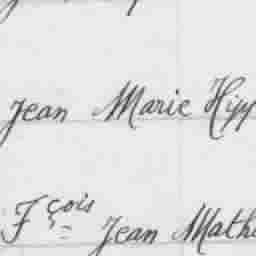 Jean Marie Hipp
Fçois Jean Math